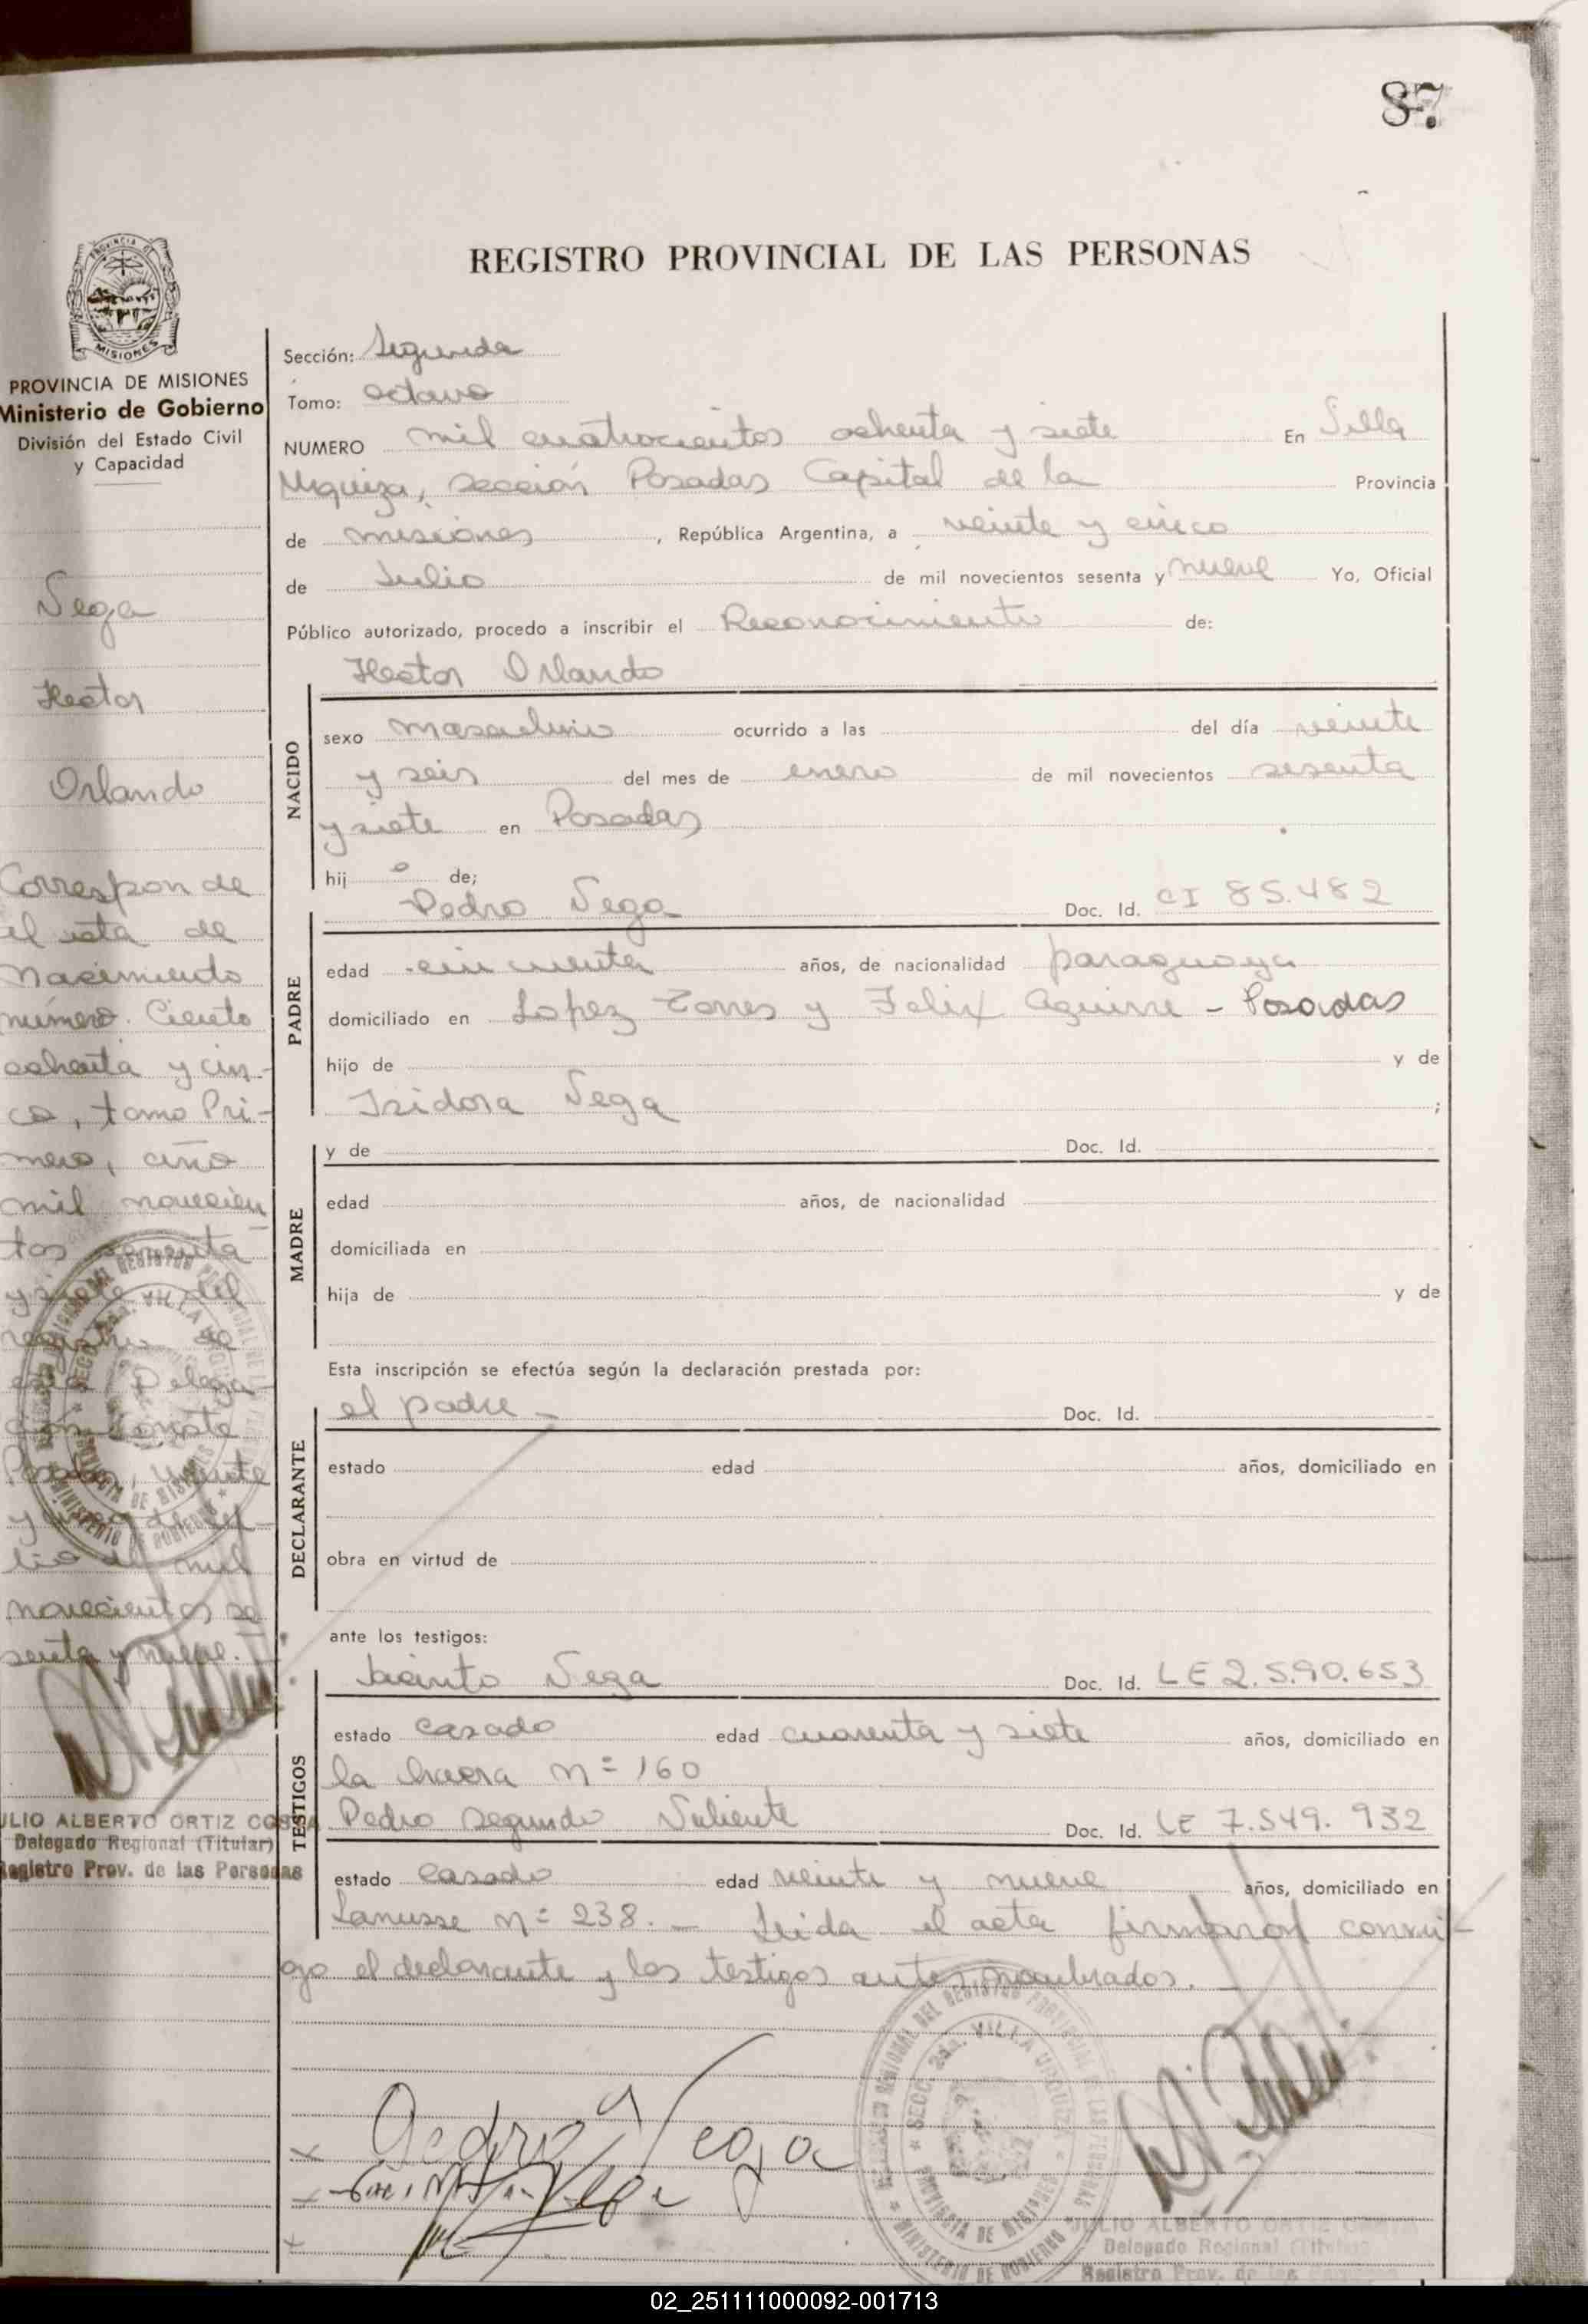 87
REGISTRO PROVINCIAL DE LAS PERSONAS
MISIONES
PROVINCIA DE MISIONES
Ministerio de Gobierno
División del Estado Civil
y Capacidad
Vega
Hector
Orlando
Corresponde
el acta de
Nacimiento
número Ciento
ochenta y cin-
co, tomo Pri-
mero, año
mil novecien
tos sesenta
y siete del
registro de
esta Delega-
ción Conste
Posadas, veinte
y cinco de Ju-
lio de mil
novecientos se
senta y nueve.
JULIO ALBERTO ORTIZ COSTA
Delegado Regional (Titular)
Registro Prov. de las Personas
Sección: Segunda
Tomo: octavo
NUMERO mil cuatrocientos ochenta y siete En Villa
Urquiza, sección Posadas Capital de la Provincia
de misiones, República Argentina, a veinte y cinco
de Julio de mil novecientos sesenta y nueve Yo, Oficial
Público autorizado, procedo a inscribir el Reconocimiento de:
Hector Orlando
NACIDO
sexo masculino ocurrido a las del día veinte
y seis del mes de enero de mil novecientos sesenta
y siete en Posadas
hijo de;
Pedro Vega Doc. Id. CI 85.482
PADRE
edad cincuenta años, de nacionalidad paraguaya
domiciliado en Lopez Torres y Felix Aguirre - Posadas
hijo de y de
Isidora Vega ;
MADRE
y de Doc. Id.
edad años, de nacionalidad
domiciliada en
hija de y de
Esta inscripción se efectúa según la declaración prestada por:
el padre - Doc. Id.
DECLARANTE
estado edad años, domiciliado en
obra en virtud de
ante los testigos:
Jacinto Vega Doc. Id. LE 2.590.653
TESTIGOS
estado casado edad cuarenta y siete años, domiciliado en
la chacra nº 160
Pedro segundo Valiente Doc. Id. LE 7.549.932
estado casado edad veinte y nueve años, domiciliado en
Lanusse nº 238. - Leida el acta firmaron conmi-
go el declarante y los testigos antes nombrados.
x Pedro Vega
x
x
SECC. 2da. VILLA URQUIZA
PROVINCIA DE MISIONES
MINISTERIO DE GOBIERNO
JULIO ALBERTO ORTIZ COSTA
Delegado Regional (Titular)
Registro Prov. de las Personas
02_251111000092-001713